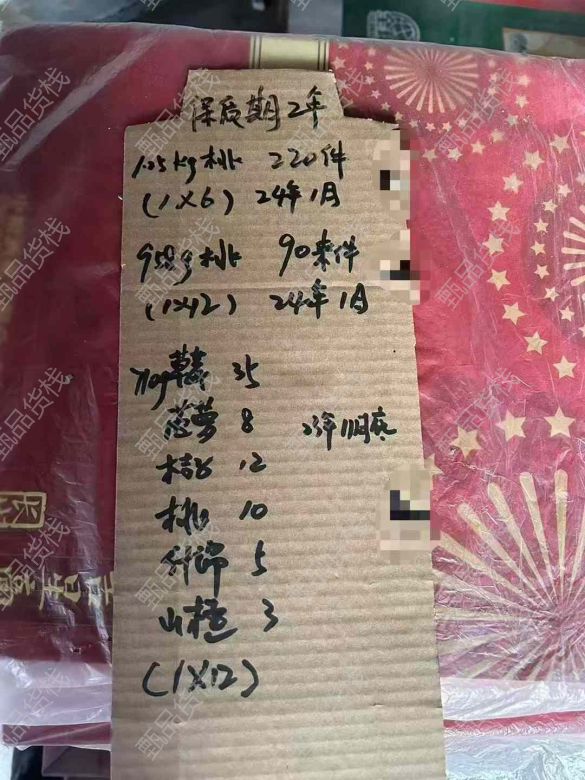 保质期2年
1.25kg桃 220件
(1×6) 24年1月
桃 90来件
(1×12) 24年1月
35
菠萝 8 23年11月底
桔子 12
桃 10
什锦 5
山楂 3
(1×12)
甄品货栈